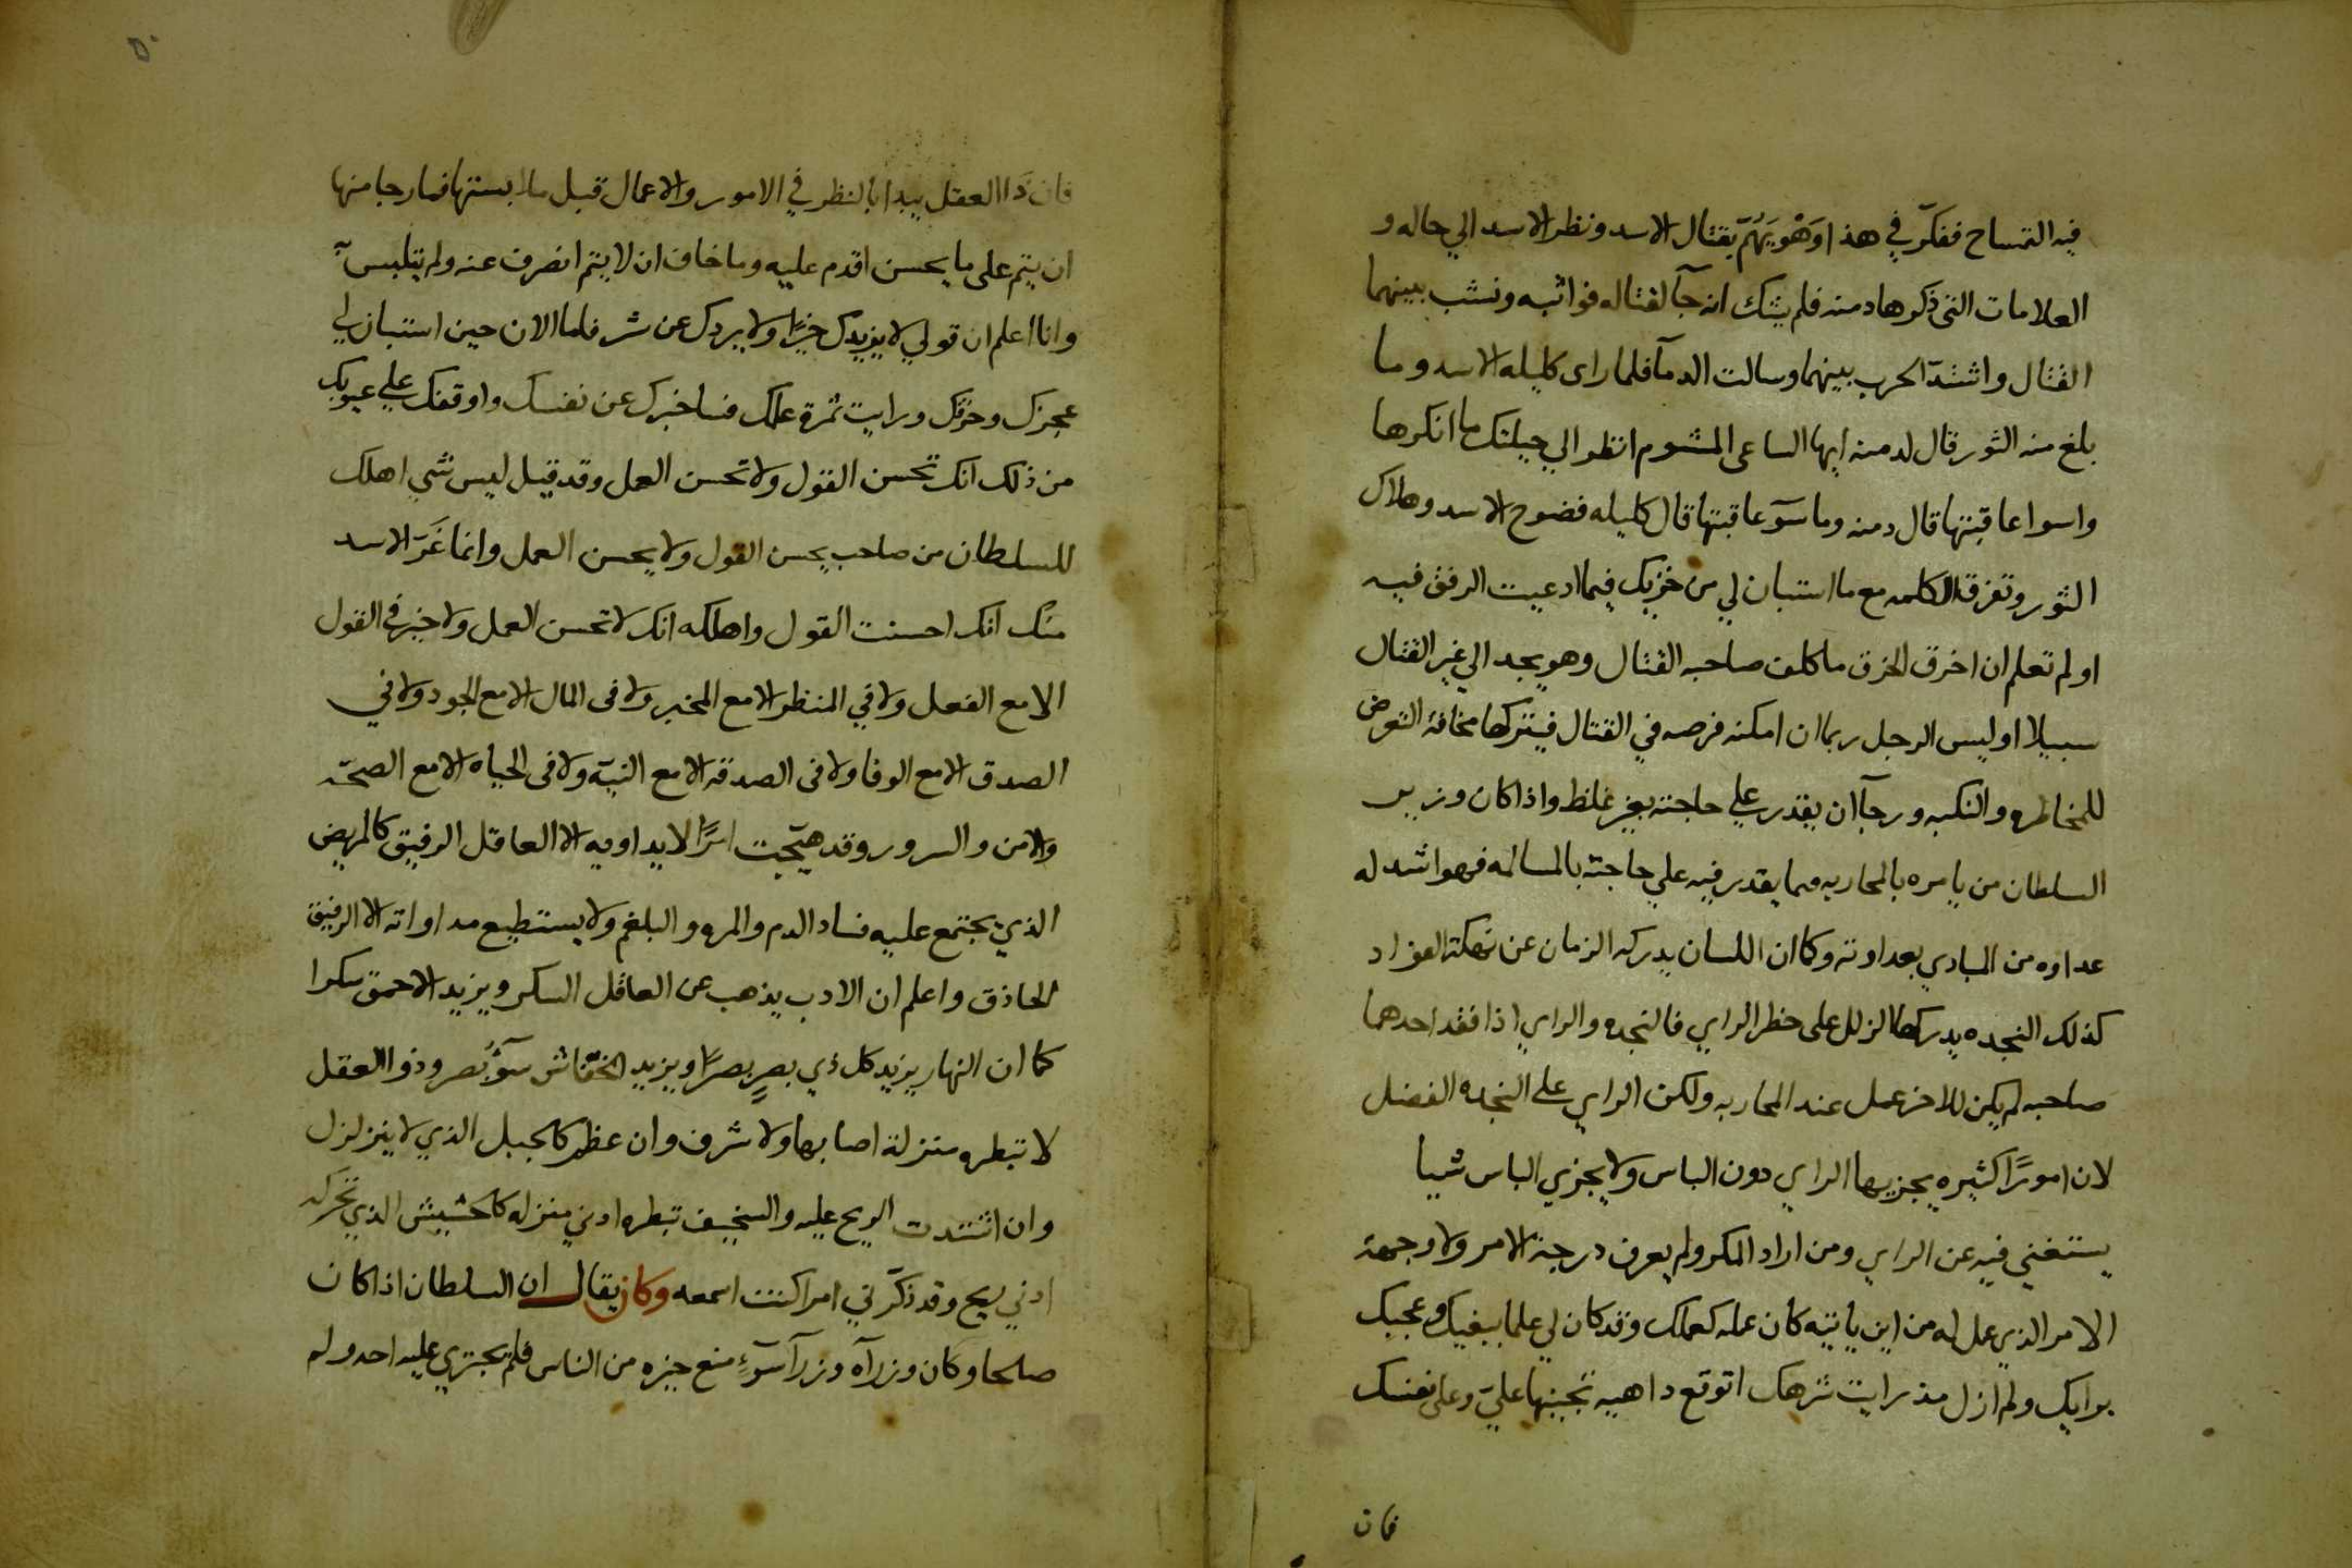 فيه التمساح ففكّر في هذا وَهْوَ يَهُمّ بقتال الاسد ونظر الاسد الي حاله و
العلامات التي ذكرها دمنه فلم يشك انه جآ لقتاله فواثبه ونشب بينهما
القتال واشتدّ الحرب بينهما وسالت الدمآ فلما راى كليله الاسد وما
بلغ منه الثور قال لدمنه ايها الساعى المشوم انظر الي حيلتك ما انكرها
واسوا عاقبتها قال دمنه وما سوٓ عاقبتها قال كليله فضوح الاسد وهلاك
الثور وتفرق الكلمه مع ما استبان لي من خرقك فيما ادعيت الرفق فيه
اولم تعلم ان اخرق الخرق ما كلف صاحبه القتال وهو يجد الي غير القتال
سبيلا اوليس الرجل ربما ان امكنه فرصه في القتال فيتركها مخافة التعرض
للمخاطره والنكبه ورجآ ان يقدر علي حاجته بغير غلظ واذا كان وزير
السلطان من يامره بالمحاربه مما يقدر فيه علي حاجته بالمسالمه فهو اشد له
عداوه من البادي بعداوته وكما ان اللسان يدركه الزمان عن نهكة الفواد
كذلك النجده يدركها الزلل على خطر الراي فالنجده والراي اذا فقد احدهما
صاحبه لم يكن للاخر عمل عند المحاربه ولكن الراي علي النجده الفضل
لان امورًا كثيره يجزيها الراي دون الباس ولا يجزي الباس شيا
يستغني فيه عن الراي ومن اراد المكر ولم يعرف درجة الامر ولا وجهة
الامر الذي عمل له من اين ياتيه كان عمله كعملك وقد كان لي علما ببغيك وعجبك
برايك ولم ازل مذ رايت شرهك اتوقع داهيه تجنيها عليّ وعلى نفسك
فان
٥٠
فان ذَا العقل يبدا بالنظر في الامور والاعمال قبل ملابستها فما رجا منها
ان يتم على ما يحسن اقدم عليه وما خاف ان لا يتم انصرف عنه ولم يتلبس به
وانا اعلم ان قولي لا يزيدك خيرًا ولا يردك عن شر فاما الان حين استبان لي
عجزك وخرقك ورايت ثمرة عملك فساخبرك عن نفسك واوقفك علي عيوبك
من ذلك انك تحسن القول ولا تحسن العمل وقد قيل ليس شي اهلك
للسلطان من صاحب يحسن القول ولا يحسن العمل وانما غَرّ الاسد
منك انك احسنت القول واهلكه انك لا تحسن العمل ولا خير في القول
الا مع الفعل ولا في المنظر الا مع المخبر ولا في المال الا مع الجود ولا في
الصدق الا مع الوفا ولا في الصدقه الا مع النيّة ولا في الحياه الا مع الصحّه
والامن والسرور وقد هيّجت امرًا لا يداويه الا العاقل الرفيق كالمريض
الذي يجتمع عليه فساد الدم والمره والبلغم ولا يستطيع مداواته الا الرفيق
الحاذق واعلم ان الادب يذهب عن العاقل السكر ويزيد الاحمق سكرا
كما ان النهار يزيد كل ذي بصرٍ بصرًا ويزيد الخفّاش سوٓ بُصر وذوا العقل
لا تبطره منزلة اصابها ولا شرف وان عظم كالجبل الذي لا يتزلزل
وان اشتدت الريح عليه والسخيف تبطره ادني منزله كالحشيش الذي تحركه
ادني ريح وقد ذكّرتني امرا كنت اسمعه وكان يقال ان السلطان اذا كان
صلحا وكان وزرآه وزرآ سوٓءٍ منع خيره من الناس فلم يجتري عليه احد وله